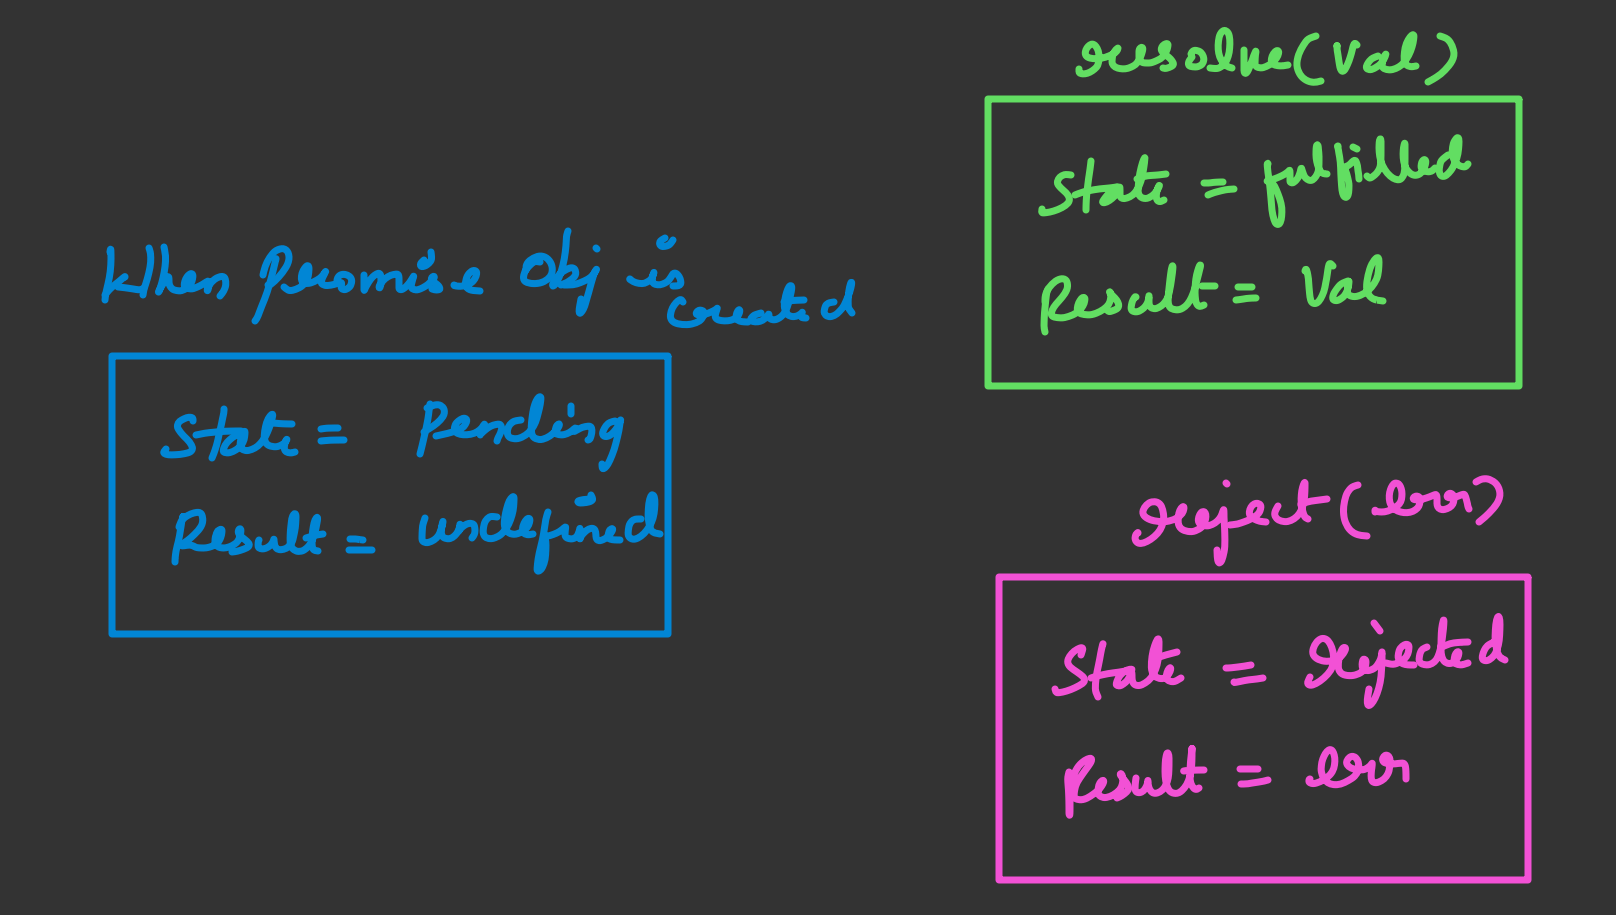 When Promise Obj is
created
State = Pending
Result = undefined
resolve(Val)
State = fulfilled
Result = Val
reject(err)
State = rejected
Result = err